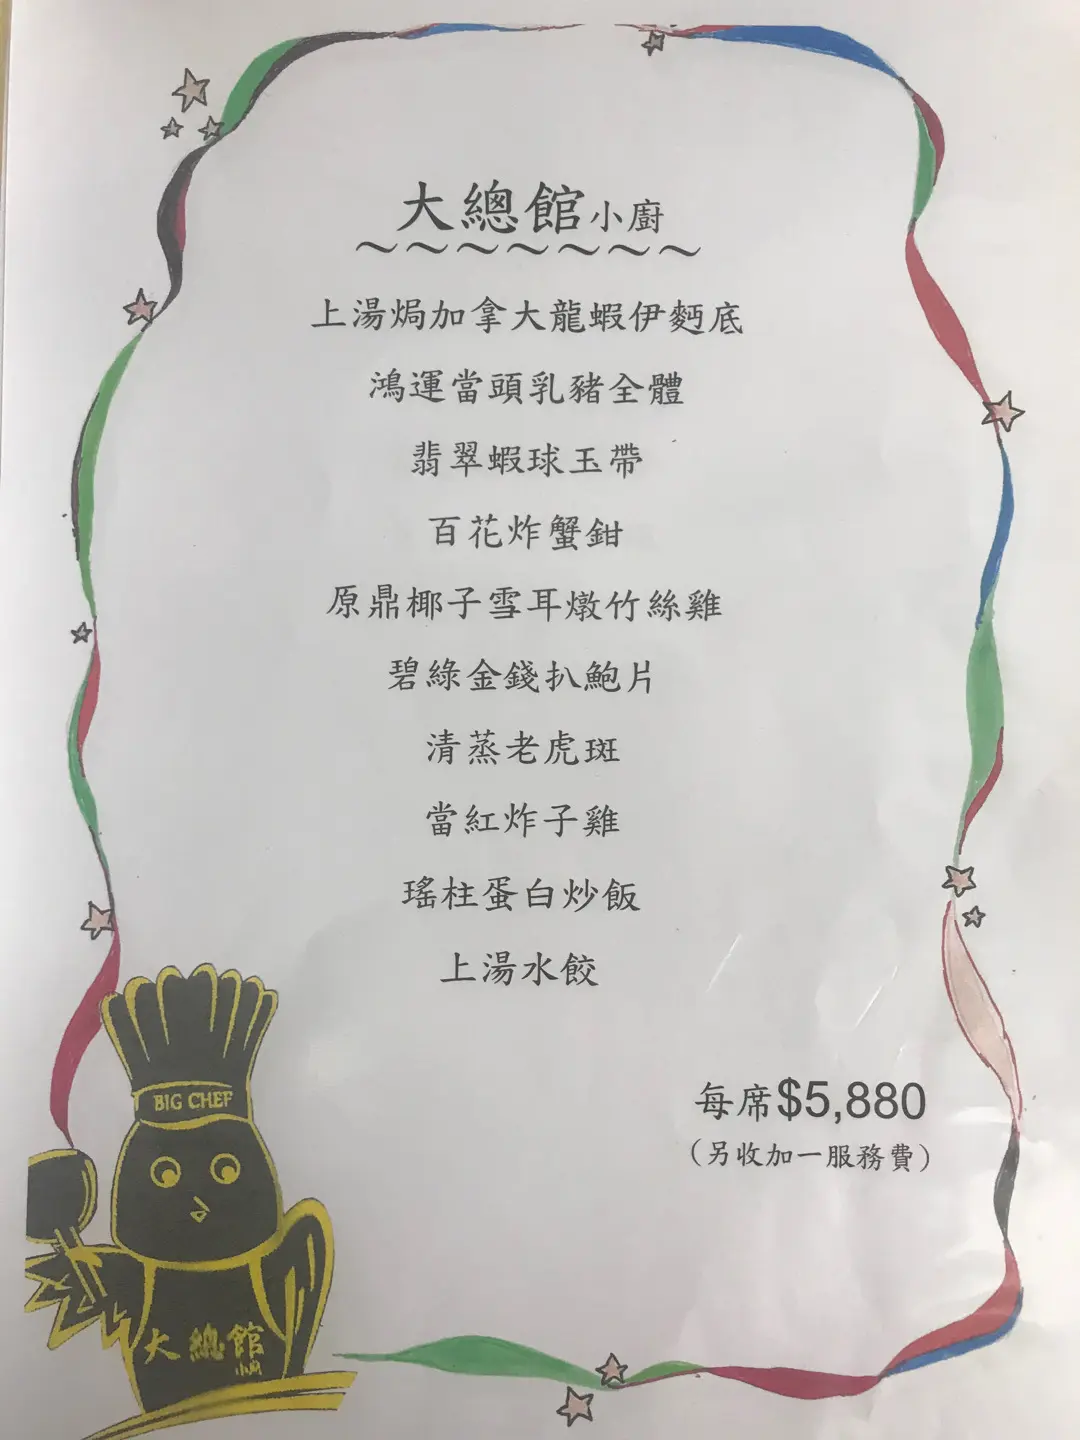 大總館小廚
上湯焗加拿大龍蝦伊麪底
鴻運當頭乳豬全體
翡翠蝦球玉帶
百花炸蟹鉗
原鼎椰子雪耳燉竹絲雞
碧綠金錢扒鮑片
清蒸老虎斑
當紅炸子雞
瑤柱蛋白炒飯
上湯水餃
每席$5,880
(另收加一服務費)
BIG CHEF
大總館
小廚